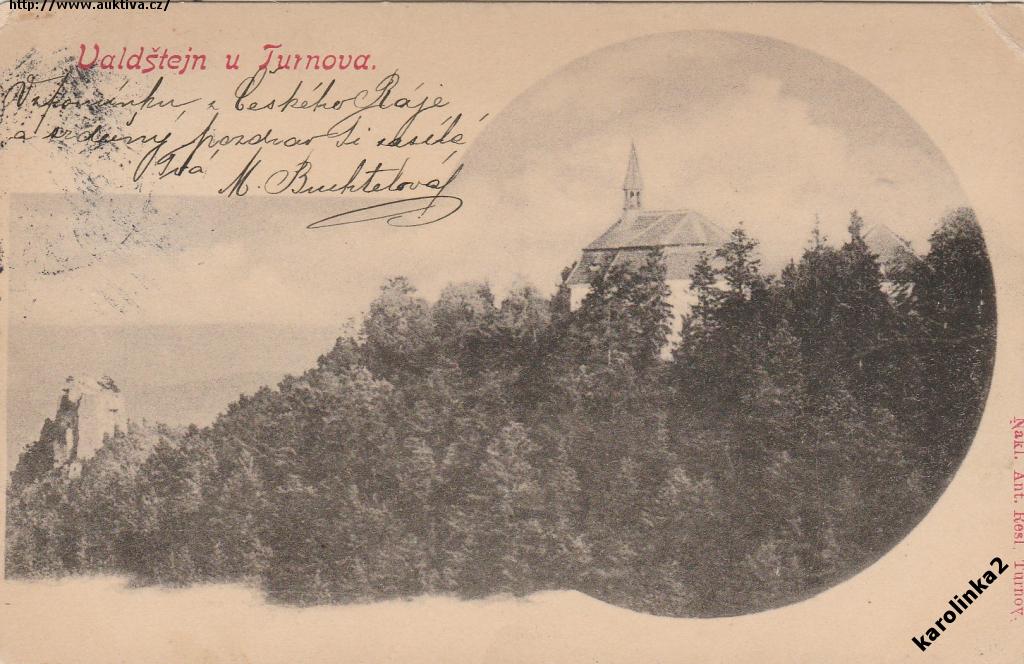 http://www.auktiva.cz/
Valdštejn u Turnova.
Vzpomínku z Českého Ráje
a srdečný pozdrav Ti zasílá
Tvá
M. Buchtelová
Nakl. Ant. Resl, Turnov.
karolinka2